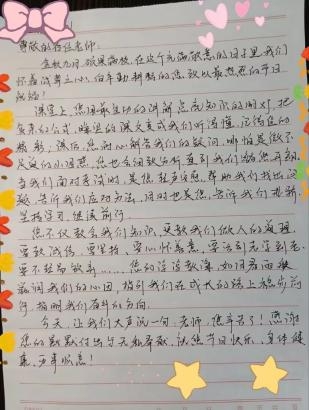 尊敬的各位老师:
金秋九月,硕果满枝,在这个充满敬意的日子里,我们
怀着感恩之心,向辛勤耕耘的您,致以最热烈的节日
祝福!
课堂上,您用最生动的讲解点亮知识的明灯,把
变成我们听得懂,记得住的
精彩;课后,您耐心解答我们的疑问,哪怕是微不
足道的小问题,您也会细致分析直到我们豁然开朗,
当我们面对考试时,是您轻声安慰,帮助我们找出问
题,告诉我们应对方法,同时也是您,告诉我们
坚持学习,继续前行。
您不仅教会我们知识,更教我们做人的道理,
要诚信,要坚持,要心怀善意,要活到老学到老,
要不轻易放弃……,您的谆谆教诲,如同春雨般
滋润我们的心田,指引我们在成长的路上稳步前
行,指明我们奋斗的方向。
今天,让我们大声说一句:老师,您辛苦了!感谢
您的默默付出与无私奉献,祝您节日快乐、身体健
康、万事顺意!